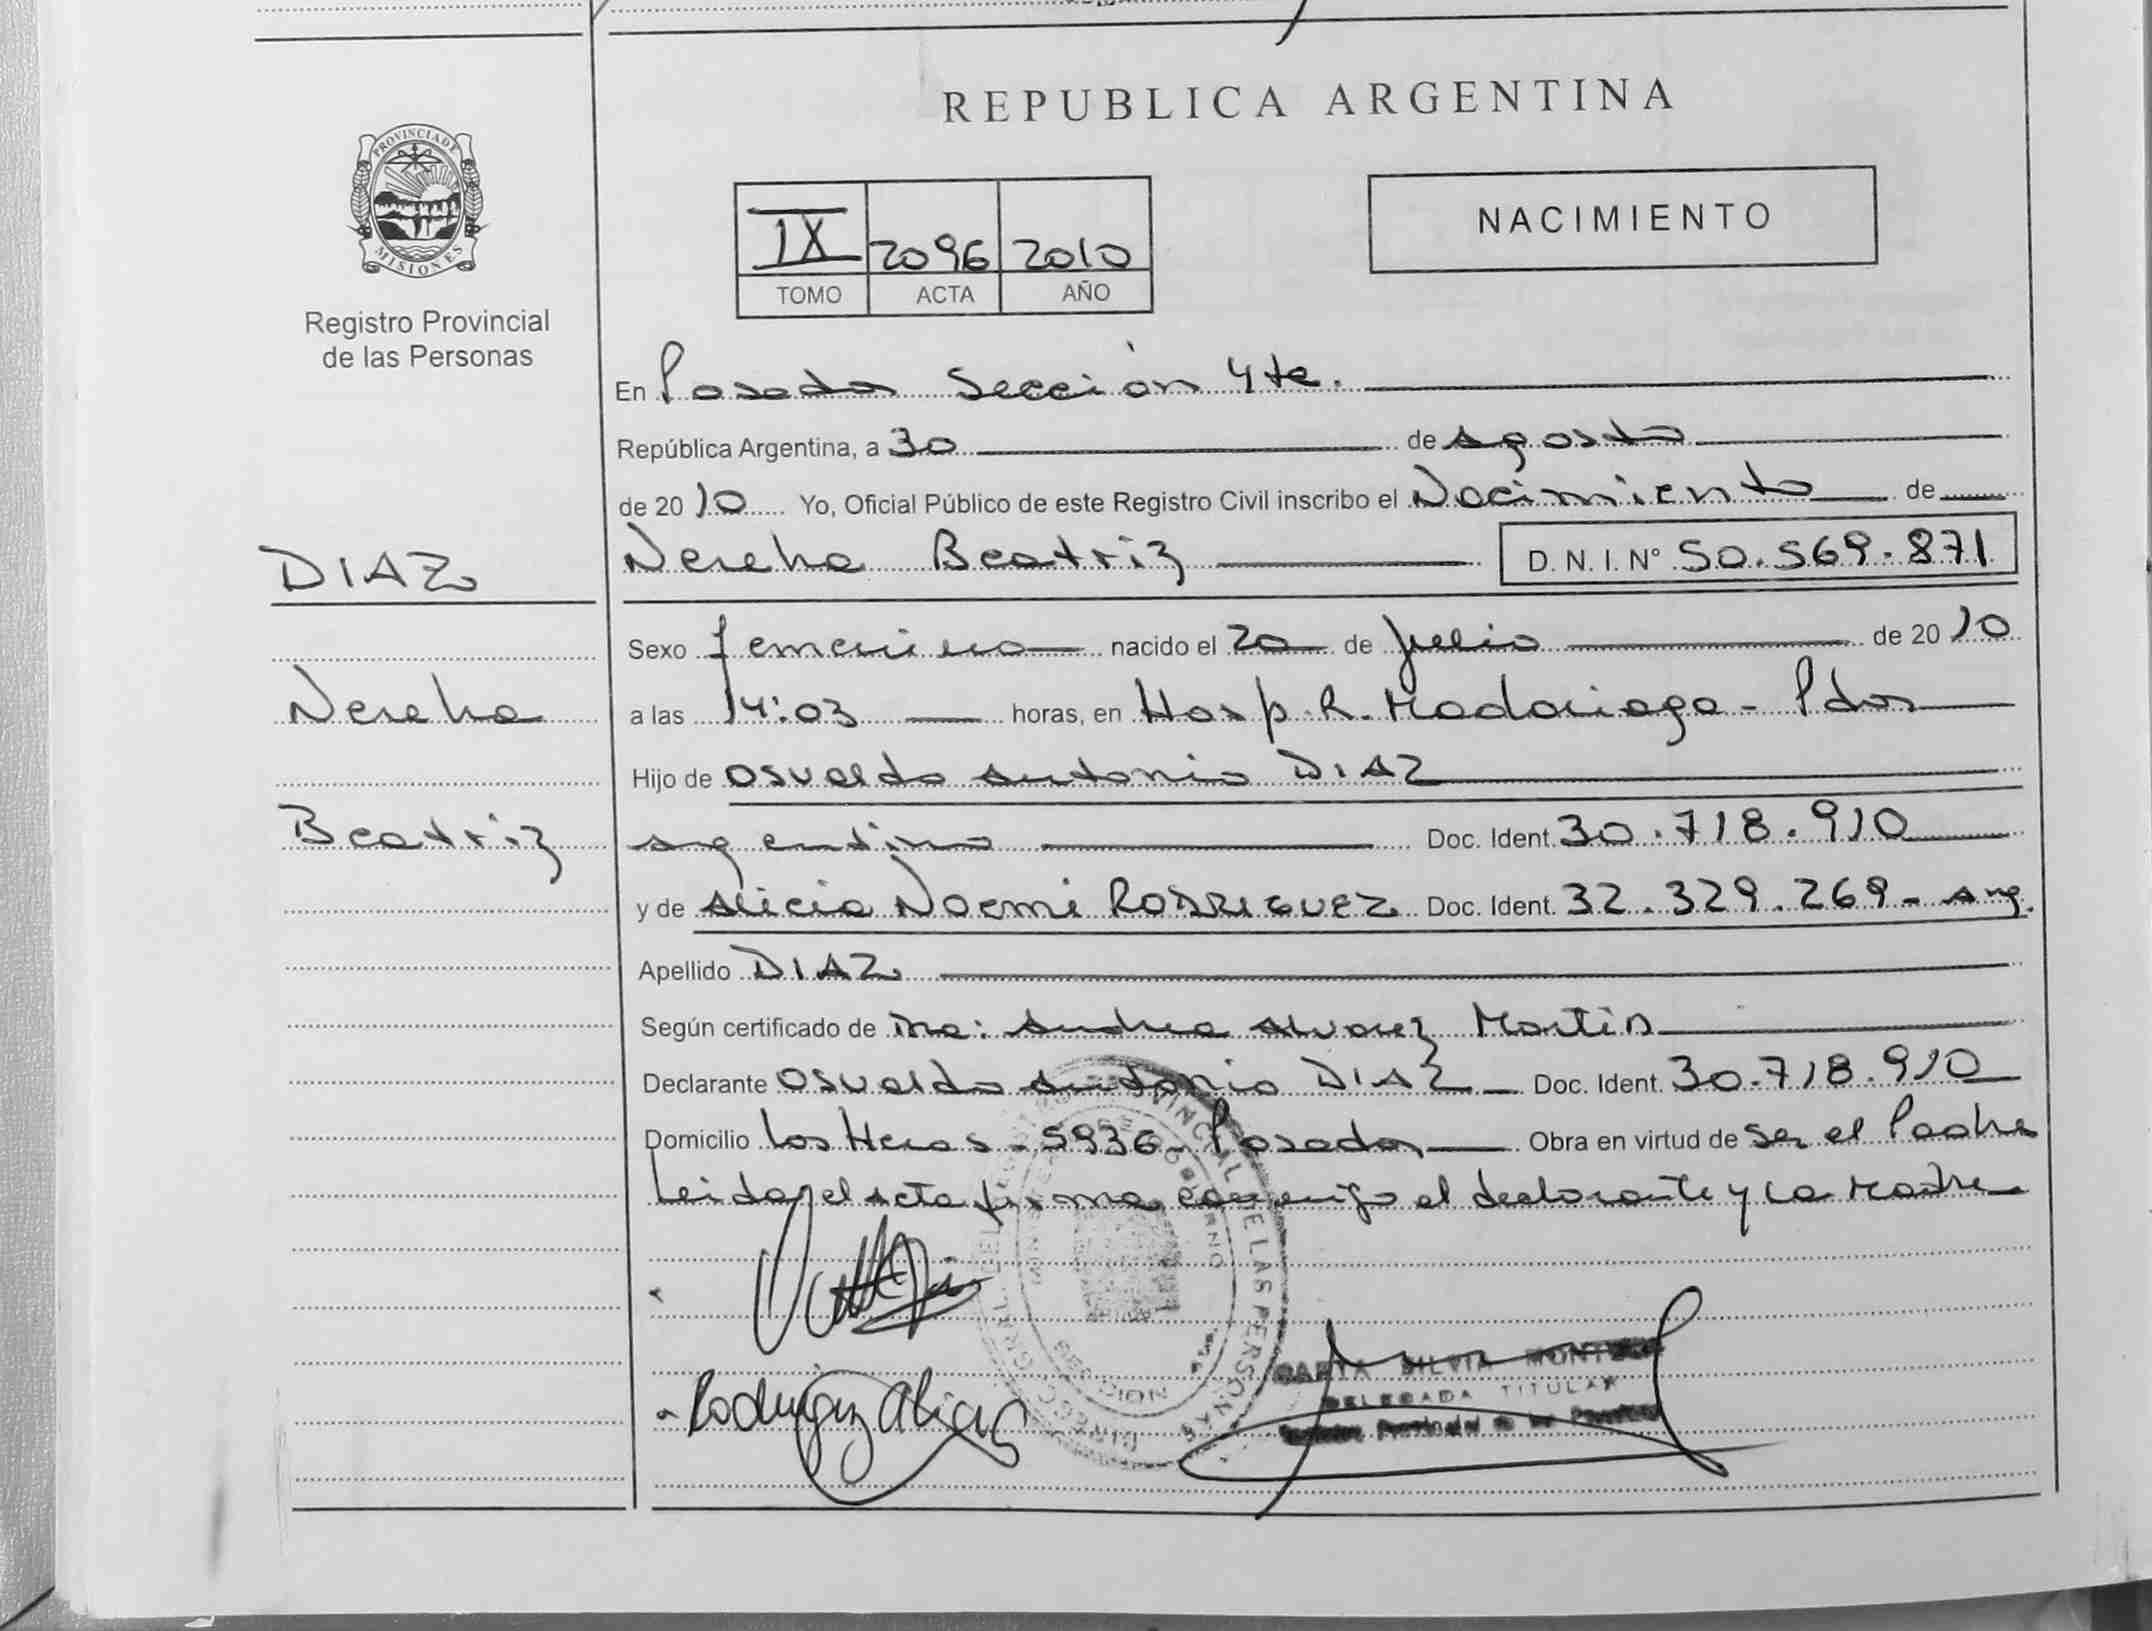 REPUBLICA ARGENTINA
PROVINCIA DE
MISIONES
Registro Provincial
de las Personas
IX 2096 2010
TOMO ACTA AÑO
NACIMIENTO
En Posadas Sección 4ta.
República Argentina, a 30 de agosto
de 2010 Yo, Oficial Público de este Registro Civil inscribo el Nacimiento de
DIAZ
Nereha Beatriz D. N. I. Nº 50.569.871
Sexo femenino nacido el 20 de Julio de 2010
Nereha
a las 14:03 horas, en Hosp. R. Madariaga - Pdas
Hijo de Osvaldo Antonio DIAZ
Beatriz
argentino Doc. Ident. 30.718.910
y de Alicia Noemi RODRIGUEZ Doc. Ident. 32.329.269 - Arg.
Apellido DIAZ
Según certificado de Dra: Andrea Alvarez Martin
Declarante Osvaldo Antonio DIAZ Doc. Ident. 30.718.910
Domicilio Las Heras - 5936 - Posadas Obra en virtud de ser el Padre
Leida el acta firma conmigo el declarante y la Madre
Rodriguez Alicia
SILVIA
DELEGADA TITULAR
Provincial de las Personas